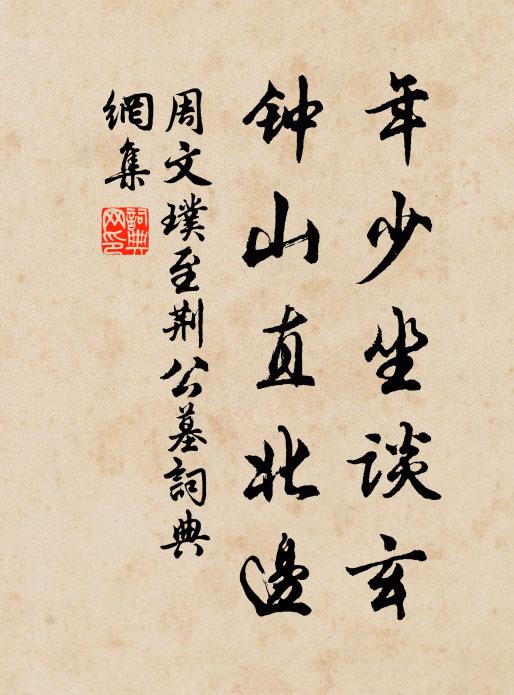 年少坐談玄
钟山直北邊
周文璞至荆公墓詞典
網集
詞典
网印